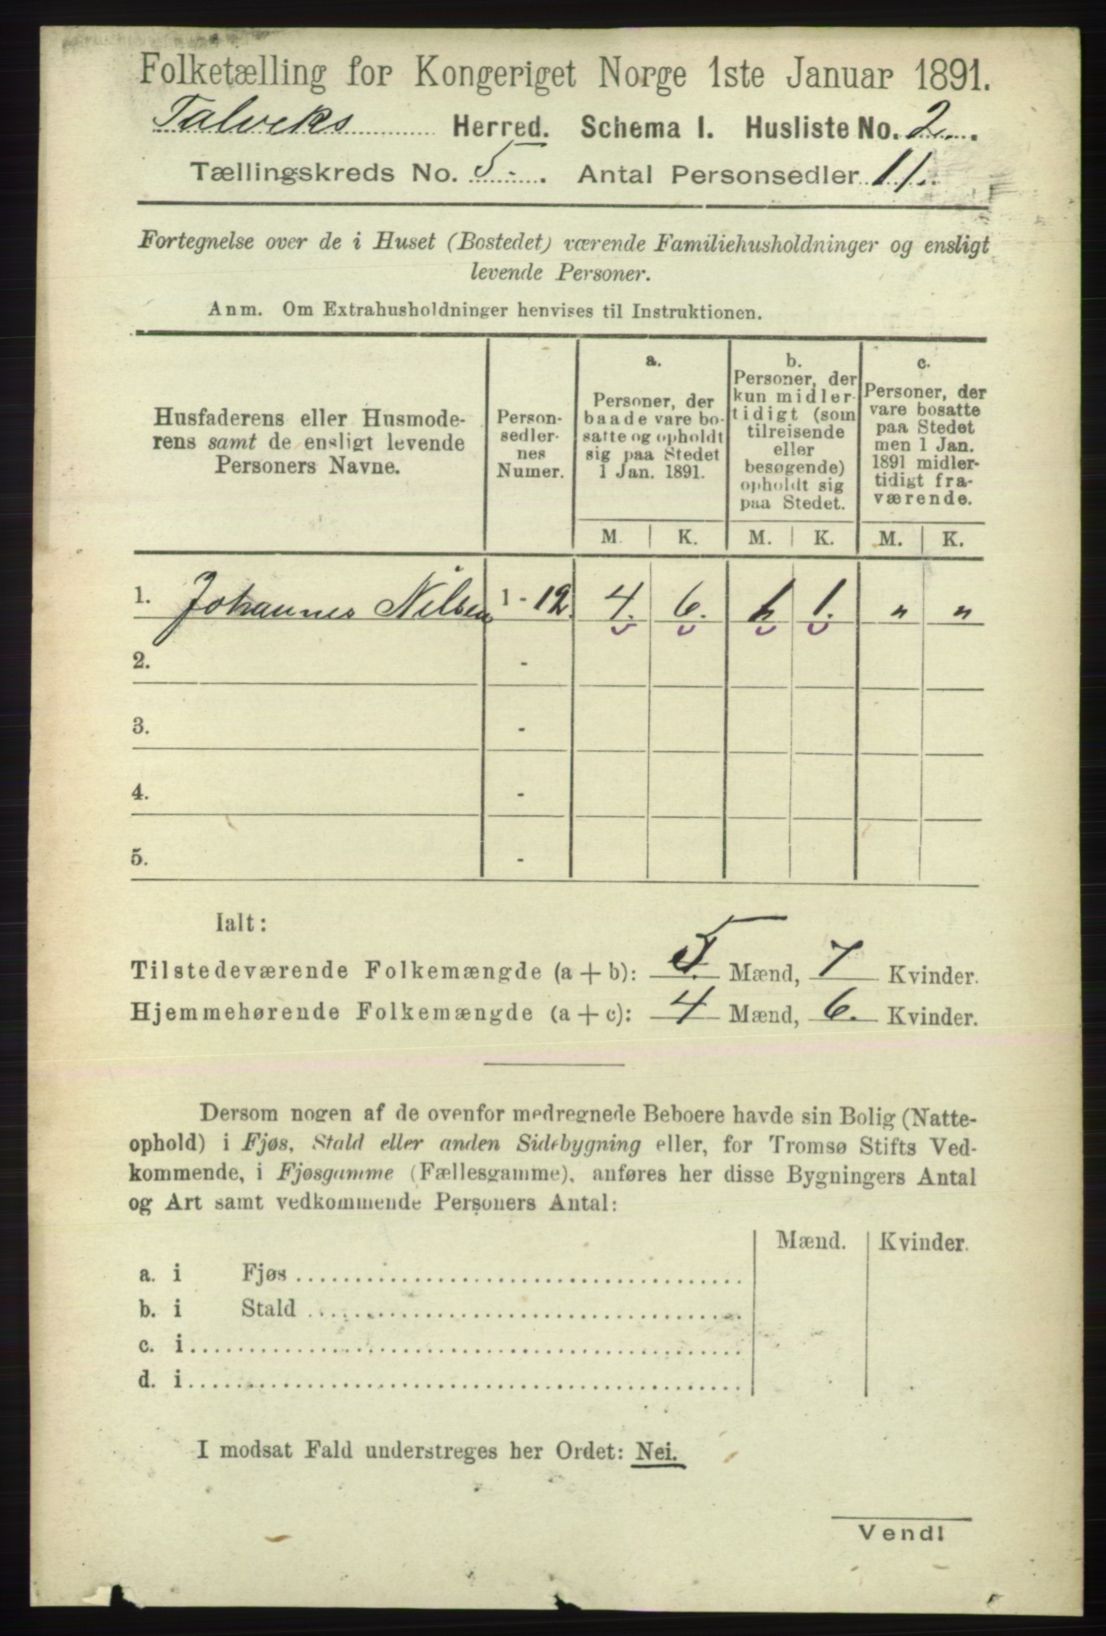 Folketælling for Kongeriget Norge 1ste Januar 1891.
Talviks Herred. Schema I. Husliste No. 2.
Tællingskreds No. 5. Antal Personsedler 11.
Fortegnelse over de i Huset (Bostedet) værende Familiehusholdninger og ensligt
levende Personer.
Anm. Om Extrahusholdninger henvises til Instruktionen.
Husfaderens eller Husmode-
rens samt de ensligt levende
Personers Navne.
Person-
sedler-
nes
Numer.
a.
Personer, der
baade vare bo-
satte og opholdt
sig paa Stedet
1 Jan. 1891.
b.
Personer, der
kun midler-
tidigt (som
tilreisende
eller
besøgende)
opholdt sig
paa Stedet.
c.
Personer, der
vare bosatte
paa Stedet
men 1 Jan.
1891 midler-
tidigt fra-
værende.
M. K. M. K. M. K.
1. Johannes Nilsen 1 - 12. 4. 6. 1. „ „
2. -
3. -
4. -
5. -
Ialt:
Tilstedeværende Folkemængde (a + b): 5. Mænd, 7 Kvinder.
Hjemmehørende Folkemængde (a + c): 4 Mænd, 6. Kvinder.
Dersom nogen af de ovenfor medregnede Beboere havde sin Bolig (Natte-
ophold) i Fjøs, Stald eller anden Sidebygning eller, for Tromsø Stifts Ved-
kommende, i Fjøsgamme (Fællesgamme), anføres her disse Bygningers Antal
og Art samt vedkommende Personers Antal:
Mænd. Kvinder.
a. i Fjøs
b. i Stald
c. i
d. i
I modsat Fald understreges her Ordet: Nei.
Vend!